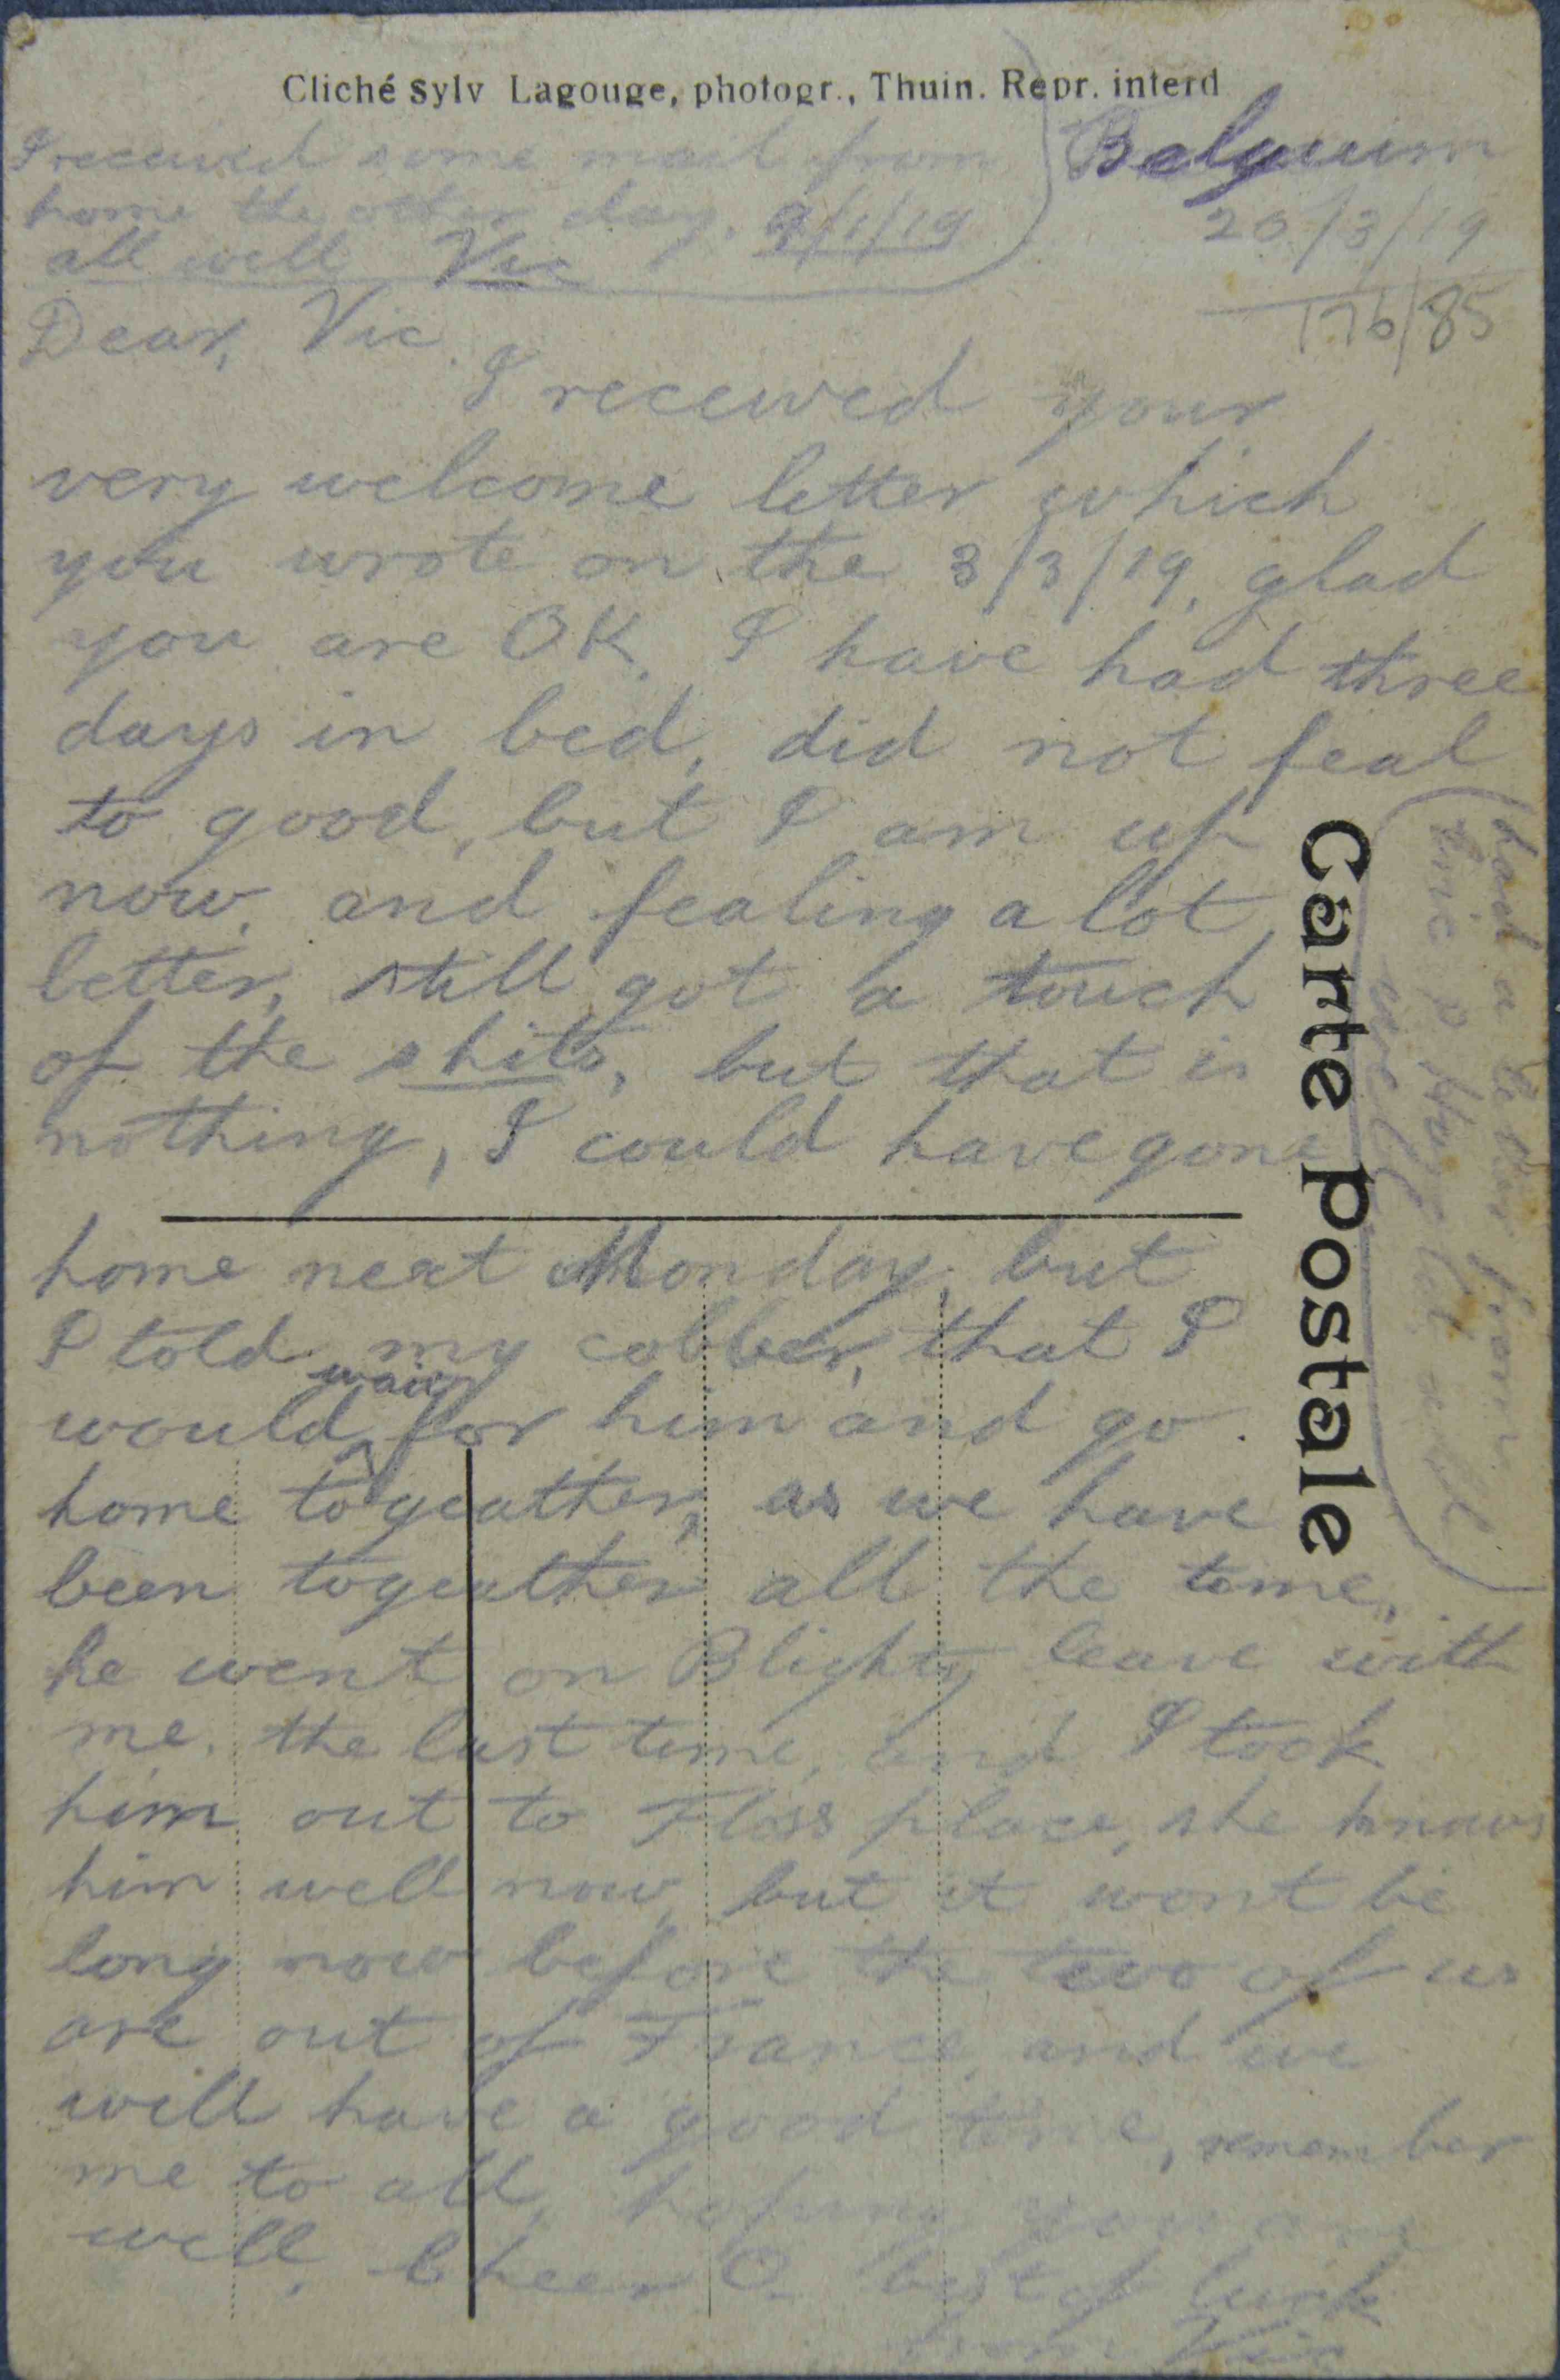 Cliché Sylv Lagouge, photogr., Thuin. Repr. interd
I received some mail from
home the other day. 9/1/19
all well Vic
Belguim
20/3/19
176/85
Dear, Vic.
I received your
very welcome letter which
you wrote on the 3/3/19, glad
you are OK. I have had three
days in bed, did not feal
to good, but I am up
now, and fealing a lot
better, still got a touch
of the shits, but that is
nothing, I could have gone
home next Monday, but
I told my cobber, that I
wait
would for him and go
home togeather, as we have
been togeather all the time,
he went on Blighty leave with
me, the last time, and I took
him out to Floss place, she knows
him well now, but it wont be
long now before the two of us
are out of France and we
will have a good time, remember
me to all, hoping you are
well, Cheer O best of luck
from Vic
Carte postale
had a letter from
well